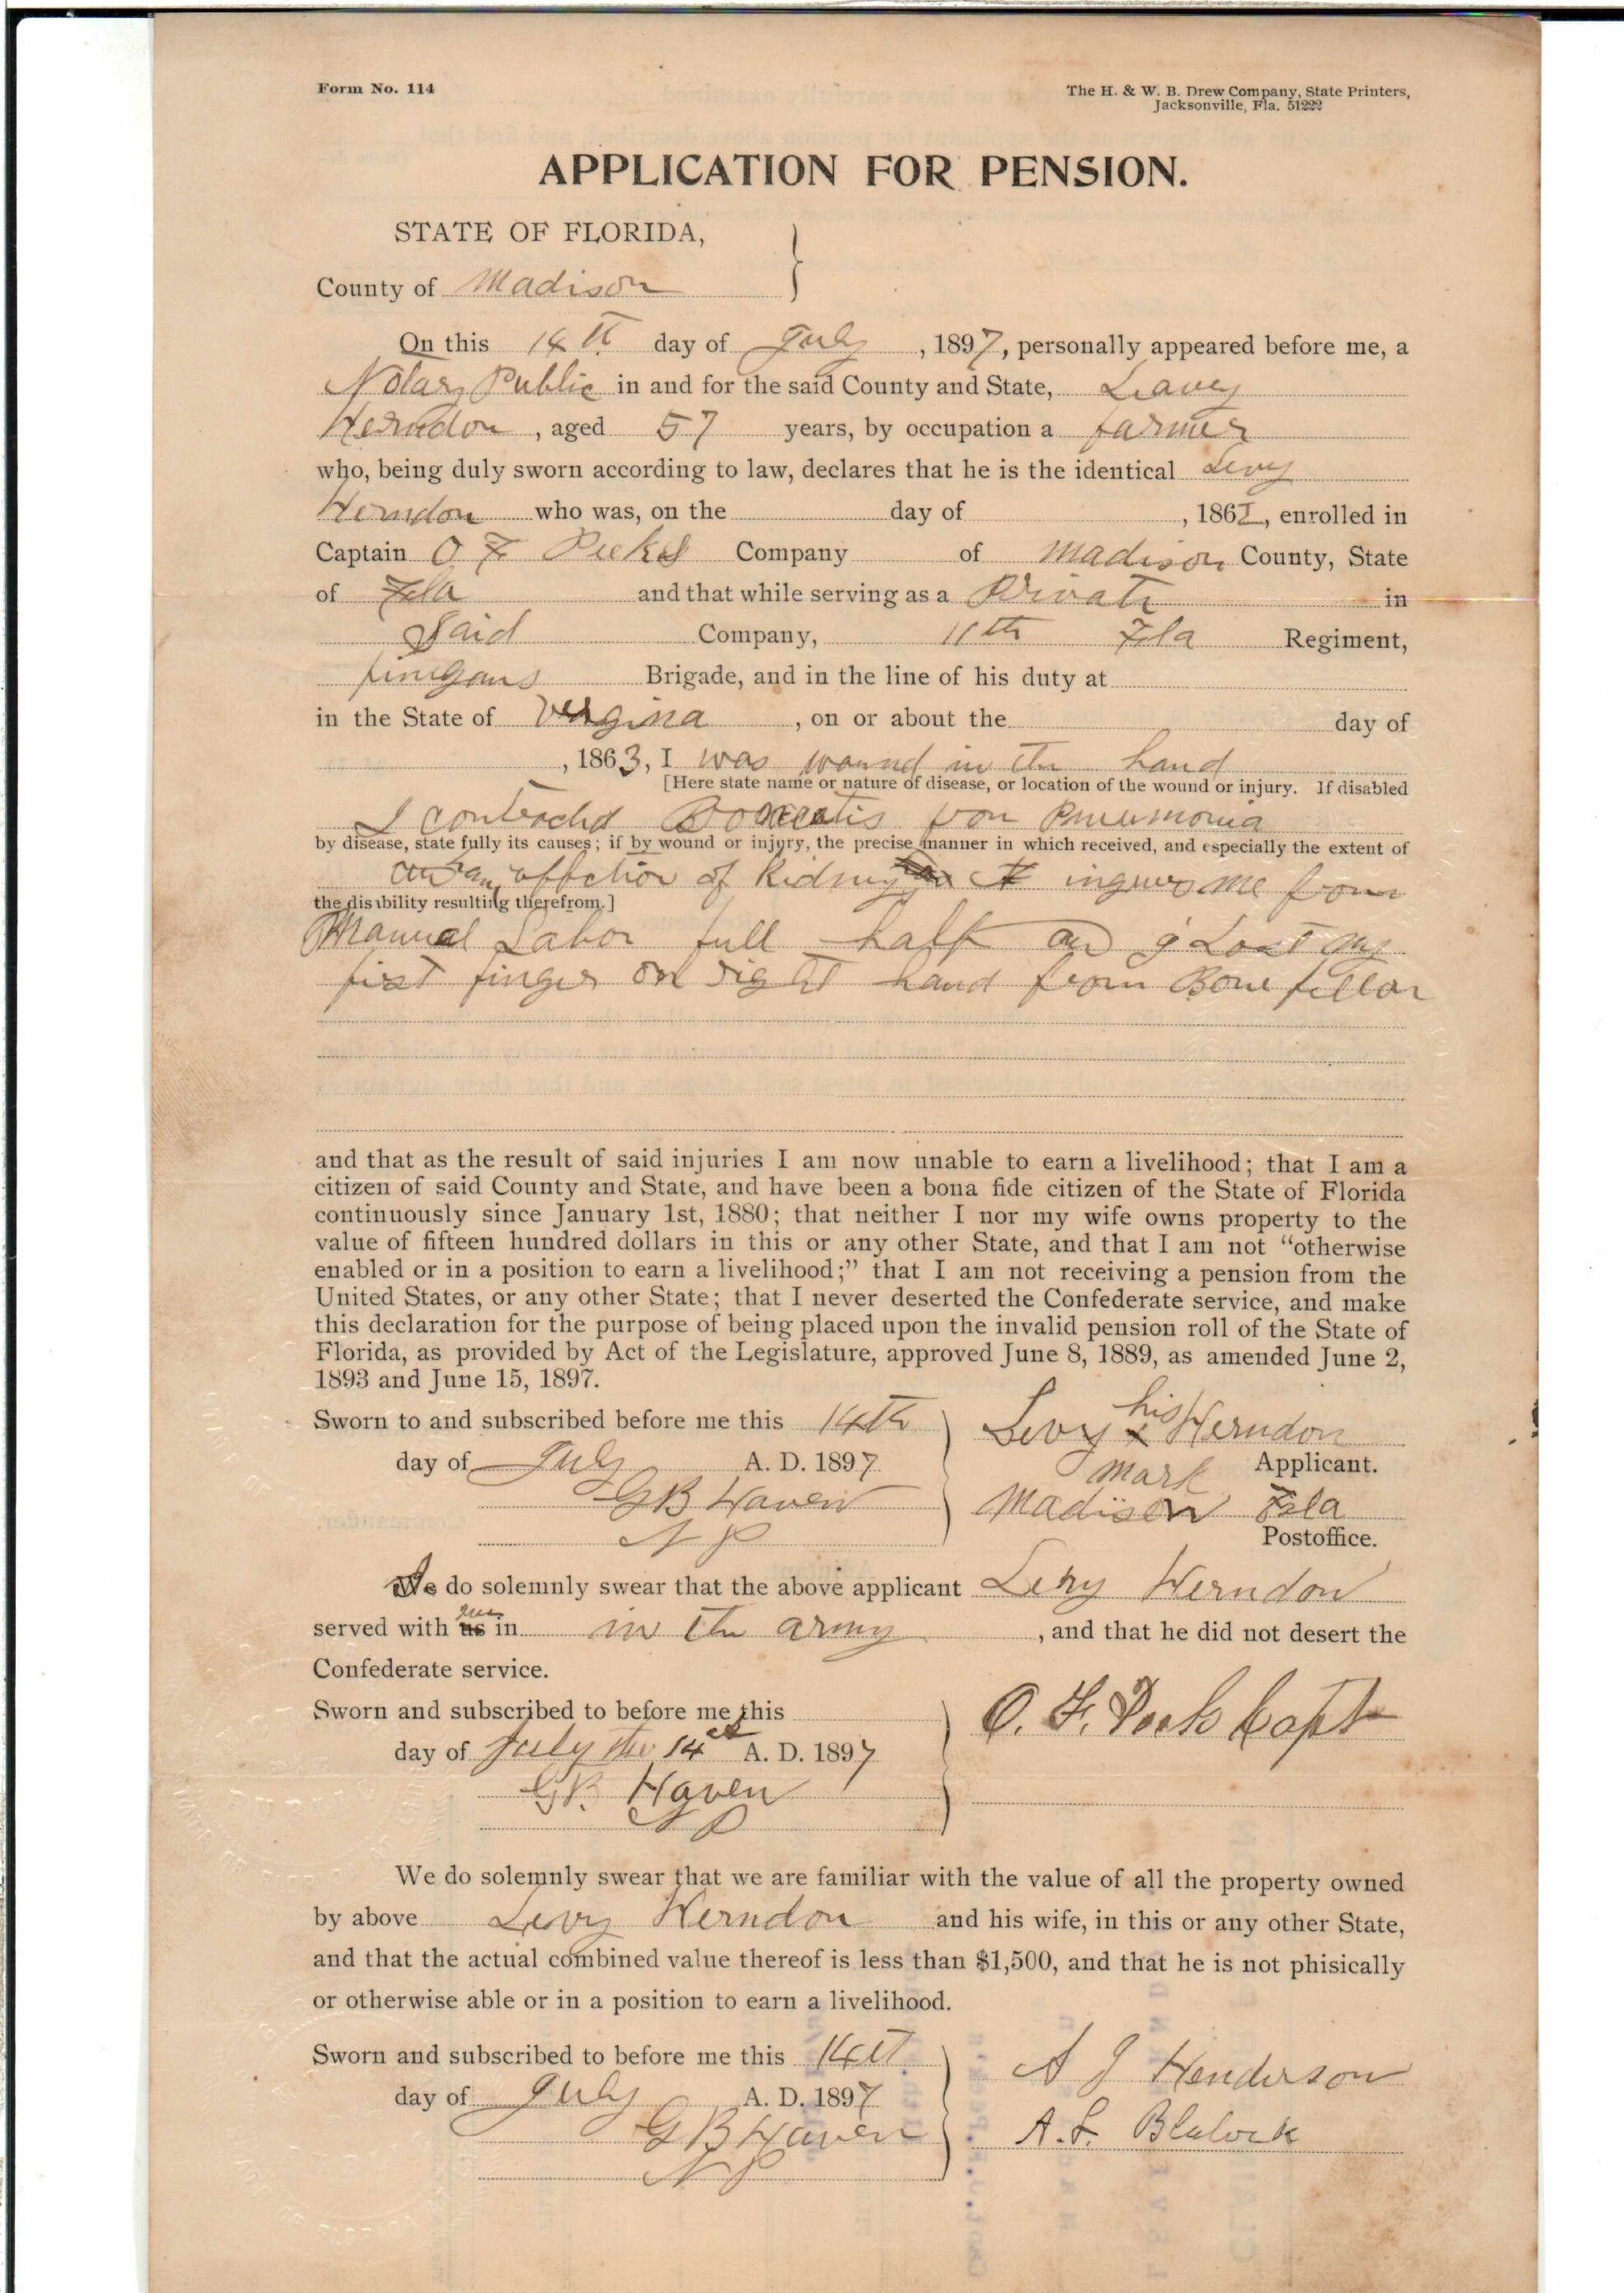 Form No. 114
The H. & W. B. Drew Company, State Printers,
Jacksonville, Fla. 51222
APPLICATION FOR PENSION.
STATE OF FLORIDA,
County of Madison
On this 14th day of July , 1897, personally appeared before me, a
Notary Public in and for the said County and State, Leavy
Herndon , aged 57 years, by occupation a farmer
who, being duly sworn according to law, declares that he is the identical Levy
Herndon who was, on the day of , 1862, enrolled in
Captain O F Peeks Company of Madison County, State
of Fla and that while serving as a Private in
Said Company, 11th Fla Regiment,
finigans Brigade, and in the line of his duty at
in the State of Vergina , on or about the day of
, 1863, I was wound in the hand
[Here state name or nature of disease, or location of the wound or injury. If disabled
I contracted from Pneumonia
by disease, state fully its causes; if by wound or injury, the precise manner in which received, and especially the extent of
an affection of Kidney it ingures me from
the disibility resulting therefrom.]
Manual Labor full half and I Lost my
first finger on right hand from Bone fellon
and that as the result of said injuries I am now unable to earn a livelihood; that I am a
citizen of said County and State, and have been a bona fide citizen of the State of Florida
continuously since January 1st, 1880; that neither I nor my wife owns property to the
value of fifteen hundred dollars in this or any other State, and that I am not “otherwise
enabled or in a position to earn a livelihood;” that I am not receiving a pension from the
United States, or any other State; that I never deserted the Confederate service, and make
this declaration for the purpose of being placed upon the invalid pension roll of the State of
Florida, as provided by Act of the Legislature, approved June 8, 1889, as amended June 2,
1893 and June 15, 1897.
Sworn to and subscribed before me this 14th
day of July A. D. 1897
G B Haven
N P
his
Levy x Herndon
mark Applicant.
Madison Fla
Postoffice.
I do solemnly swear that the above applicant Levy Herndon
served with me in in the army , and that he did not desert the
Confederate service.
Sworn and subscribed to before me this
day of July the 14th A. D. 1897
G B. Haven
N P
O. F. Peek Capt
We do solemnly swear that we are familiar with the value of all the property owned
by above Levy Herndon and his wife, in this or any other State,
and that the actual combined value thereof is less than $1,500, and that he is not phisically
or otherwise able or in a position to earn a livelihood.
Sworn and subscribed to before me this 14th
day of July A. D. 1897
G B Haven
N P
A J Henderson
A. L. Blalock